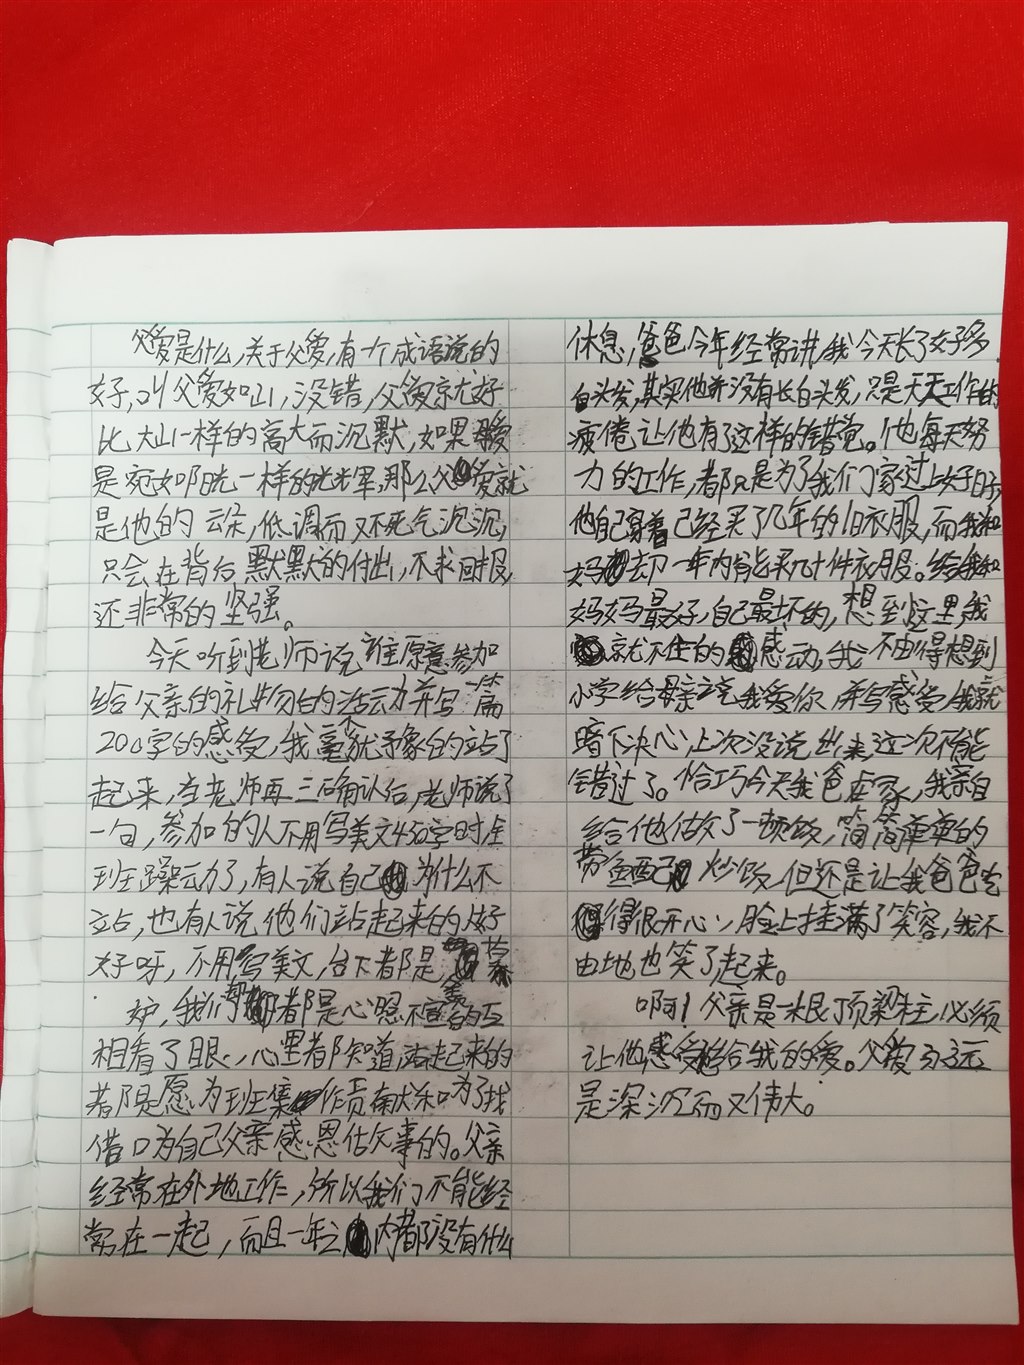 父爱是什么,关于父爱,有一个成语说的
好,叫父爱如山,没错,父爱就好
比大山一样的高大而沉默,如果母爱
是宛如阳光一样的光辉,那么父爱就
是他的云朵,低调而又不死气沉沉,
只会在背后默默的付出,不求回报,
还非常的坚强。
今天听到老师说谁愿意参加
给父亲的礼物的活动并写一篇
200字的感受,我毫不犹予象的站了
起来,当老师再三确认后,老师说了
一句,参加的人不用写美文450字时全
班躁动了,有人说自己为什么不
站,也有人说他们站起来的人好
好呀,不用写美文,台下都是慕
妒,我们都是心照不宣的互
相看了眼,心里都知道站起来的
都是愿为班集作贡献和为了找
借口为自己父亲感恩做事的。父亲
经常在外地工作,所以我们不能经
常在一起,而且一年之内都没有什么
休息,爸爸今年经常讲,我今天长了好多
白头发,其实他并没有长白头发,只是天天工作的
疲倦让他有了这样的错觉。他每天努
力的工作,都只是为了我们家过上好日子,
他自己穿着已经买了几年的旧衣服,而我和
妈却一年内能买几十件衣服。给我和
妈妈最好,自己最坏的,想到这里,我
就不住的感动,我不由得想到
小学给母亲说我爱你,并写感受,我就
暗下决心,上次没说出来,这次不能
错过了。恰巧今天我爸在家,我亲自
给他做了一顿饭,简简单单的
带鱼配炒饭,但还是让我爸爸吃
得很开心,脸上挂满了笑容,我不
由地也笑了起来。
啊!父亲是一根顶梁柱,必须
让他感受给我的爱。父爱永远
是深沉而又伟大。